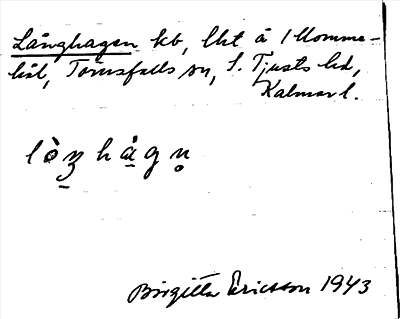 Långhagen kb, lht å 1 Momme-
hål, Törnsfalls sn, S. Tjusts hd,
Kalmar l.
lòn̠hàgn̥
Birgitta Ericsson 1943